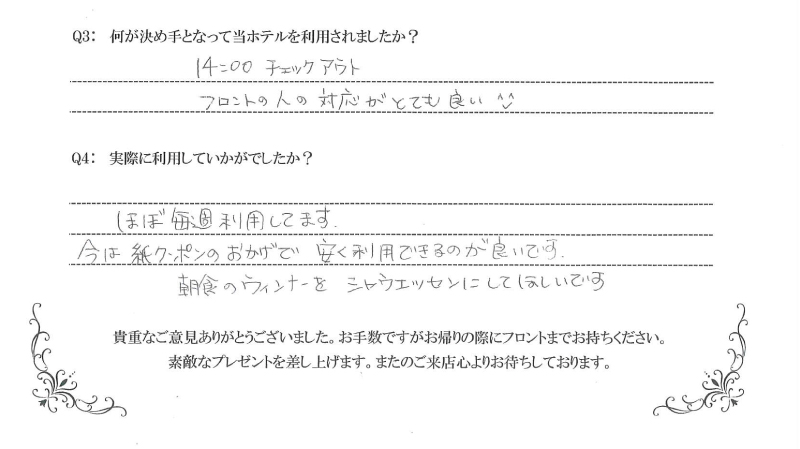 Q3： 何が決め手となって当ホテルを利用されましたか？
14:00 チェックアウト
フロントの人の対応がとても良い ^^
Q4： 実際に利用していかがでしたか？
ほぼ毎週利用してます.
今は紙クーポンのおかげで 安く利用できるのが良いです.
朝食のウィンナーを シャウエッセンにしてほしいです
貴重なご意見ありがとうございました。お手数ですがお帰りの際にフロントまでお持ちください。
素敵なプレゼントを差し上げます。またのご来店心よりお待ちしております。